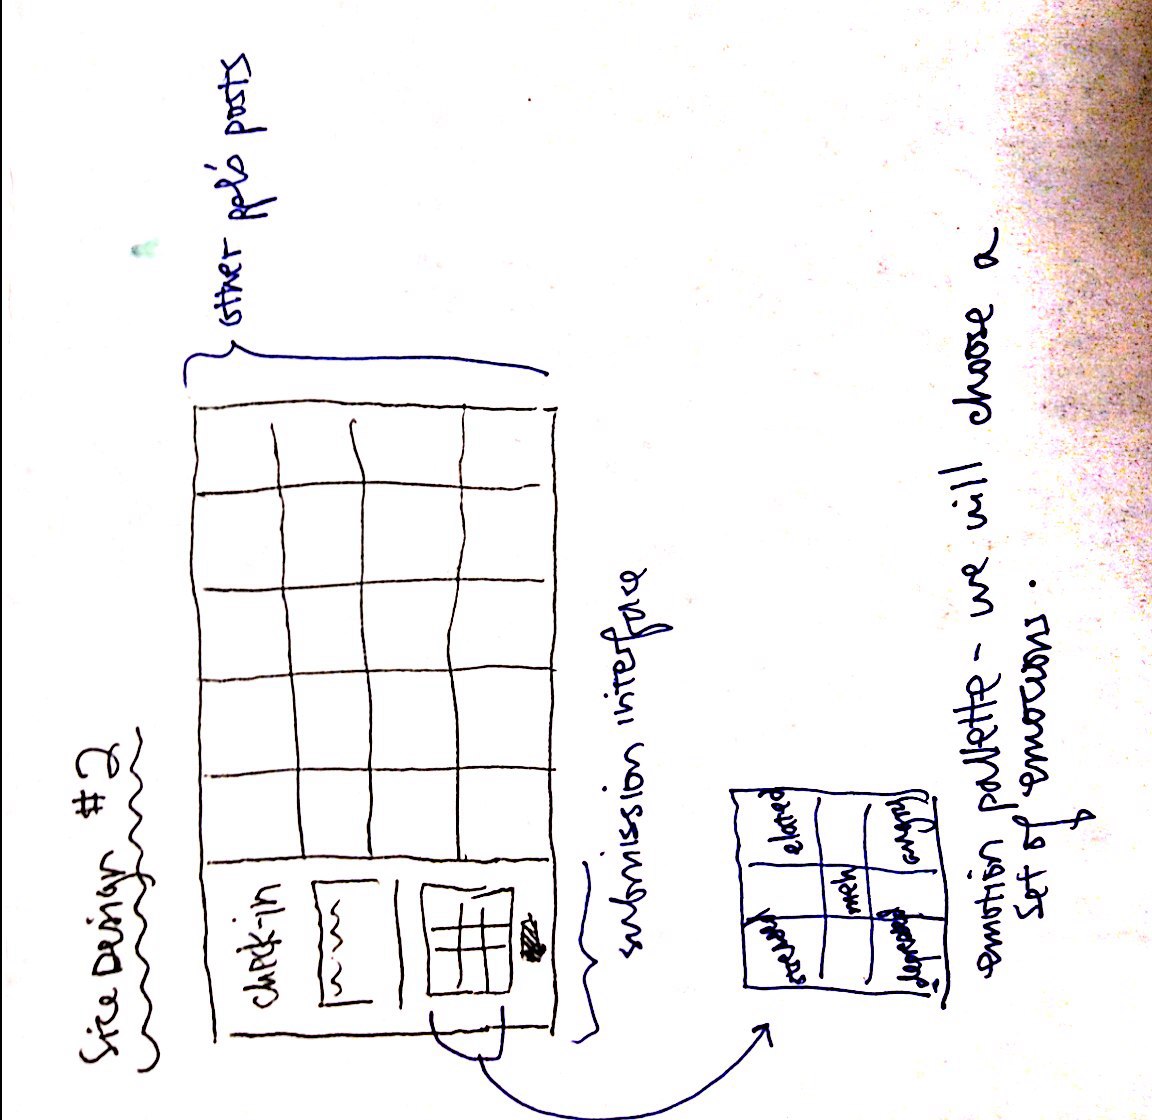 Site Design #2
other ppl's posts
check-in
submission interface
stressed elated
meh
depressed angry
emotion pallette - we will choose a
set of emotions.